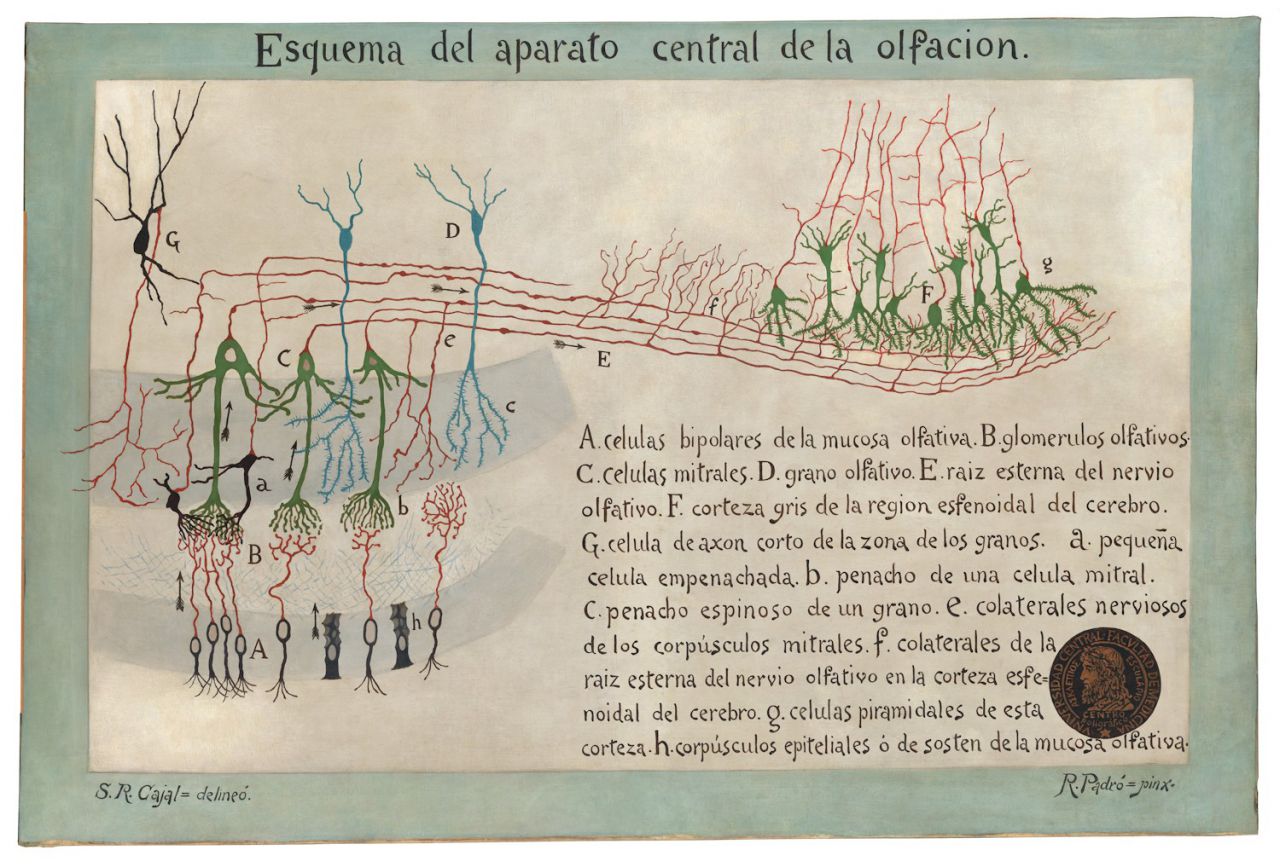 Esquema del aparato central de la olfacion.
G
D
C
e
f
F
g
E
c
a
b
B
A
h
A. celulas bipolares de la mucosa olfativa. B. glomerulos olfativos.
C. celulas mitrales. D. grano olfativo. E. raiz esterna del nervio
olfativo. F. corteza gris de la region esfenoidal del cerebro.
G. celula de axon corto de la zona de los granos. a. pequeña
celula empenachada. b. penacho de una celula mitral.
C. penacho espinoso de un grano. e. colaterales nerviosos
de los corpúsculos mitrales. f. colaterales de la
raiz esterna del nervio olfativo en la corteza esfe=
noidal del cerebro. g. celulas piramidales de esta
corteza. h. corpúsculos epiteliales ó de sosten de la mucosa olfativa.
UNIVERSIDAD CENTRAL·FACULTAD DE MEDICINA
ESCULAPIO
CENTRO
S. R. Cajal = delineó.
R. Padró = pinx.